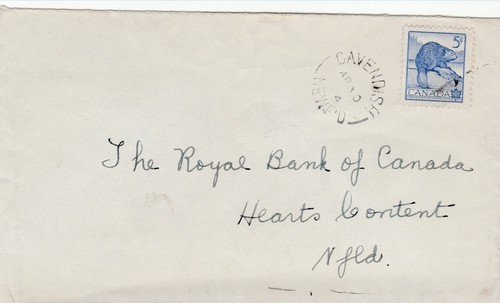 5¢
CANADA
CAVENDISH
AP
4
The Royal Bank of Canada
Hearts Content
Nfld.